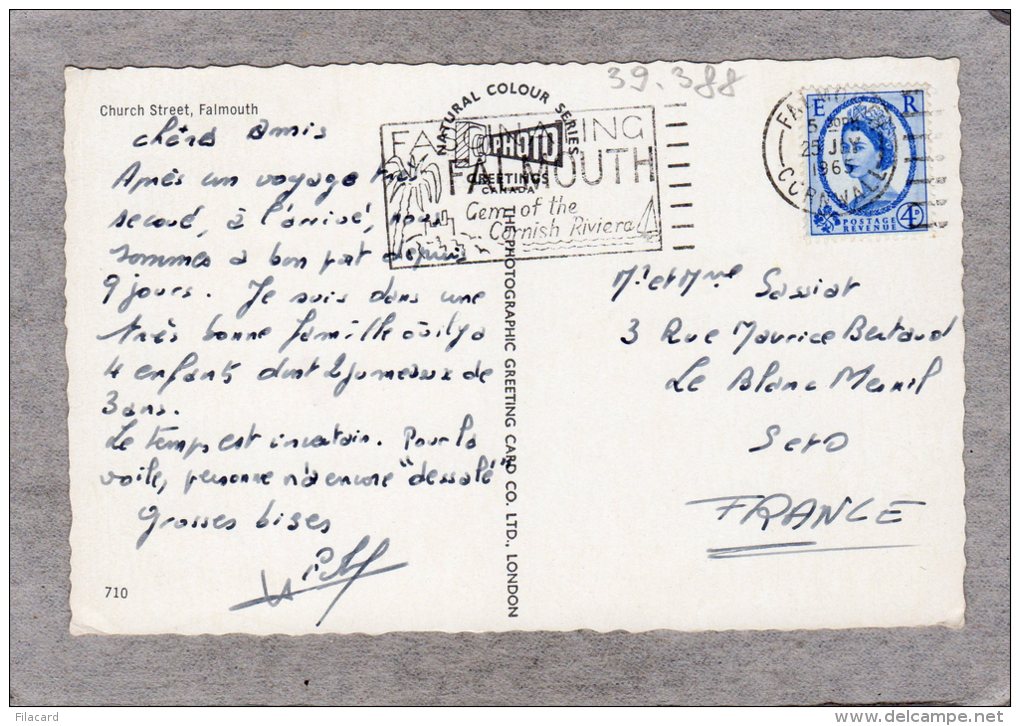 39.388
Church Street, Falmouth
NATURAL COLOUR SERIES
PHOTO
GREETINGS
CANADA
FALMOUTH
Gem of the
Cornish Riviera
E R
POSTAGE
REVENUE
4D
FALMOUTH
5 30PM
25 JLY
1965
CORNWALL
chers Amis
Après un voyage
secoué, à l'arrivé, nous
sommes à bon port depuis
9 jours. Je suis dans une
très bonne famille où il y a
4 enfants dont 2 jumeaux de
3 ans.
Le temps est incertain. Pour la
voile, personne n'a encore "dessalé"
Grosses bises
710
THE PHOTOGRAPHIC GREETING CARD CO. LTD., LONDON
Mr et Mme Sassiat
3 Rue Maurice Bertaud
Le Blanc Mesnil
S et O
FRANCE
Filacard
www.delcampe.net